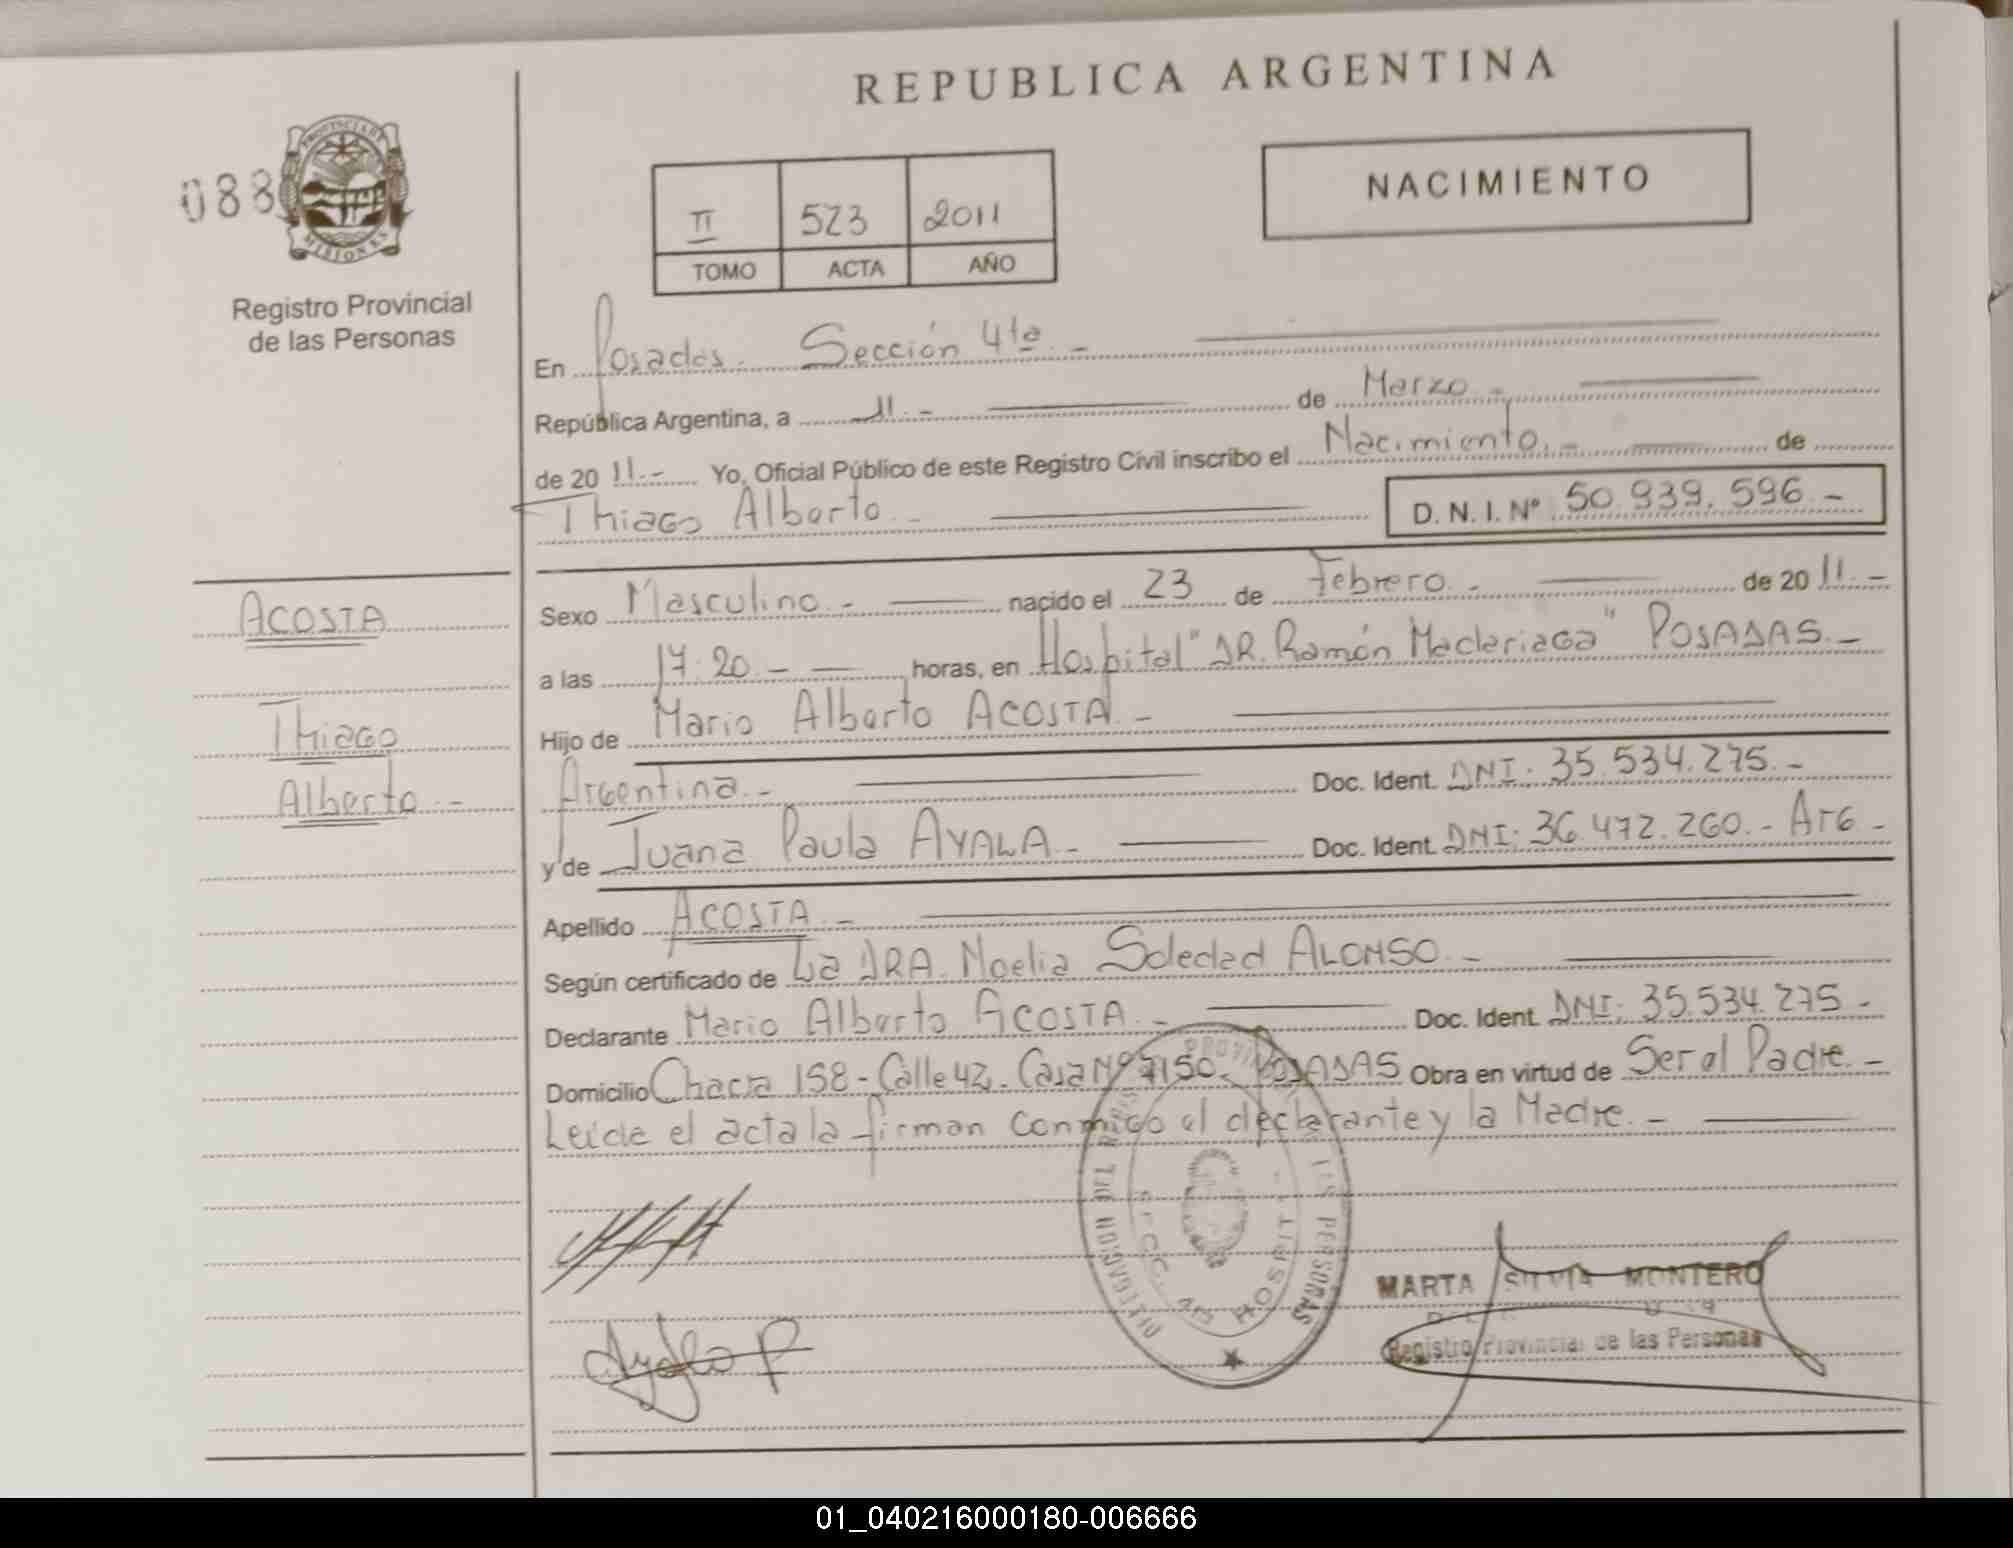 REPUBLICA ARGENTINA
088
PROVINCIA DE
MISIONES
Registro Provincial
de las Personas
II 523 2011
TOMO ACTA AÑO
NACIMIENTO
En Posadas. Sección 4ta. -
República Argentina, a 11. - de Marzo. -
de 20 11.- Yo, Oficial Público de este Registro Civil inscribo el Nacimiento. - de
Thiago Alberto. - D. N. I. Nº 50.939.596. -
ACOSTA
Thiago
Alberto. -
Sexo Masculino. - nacido el 23 de Febrero. - de 20 11. -
a las 17:20. - horas, en Hospital "DR. Ramón Madariaga" POSADAS. -
Hijo de Mario Alberto ACOSTA. -
Argentina. - Doc. Ident. DNI: 35.534.275. -
y de Juana Paula AYALA. - Doc. Ident. DNI: 36.472.260. - Arg -
Apellido ACOSTA. -
Según certificado de La DRA. Noelia Soledad ALONSO. -
Declarante Mario Alberto ACOSTA. - Doc. Ident. DNI: 35.534.275 -
Domicilio Chacra 158 - Calle 42. Casa Nº 7150. POSADAS Obra en virtud de Ser el Padre. -
Leída el acta la firman conmigo el declarante y la Madre. -
Ayala P
DELEGACION DEL REGISTRO PROVINCIAL DE LAS PERSONAS
MARTA SILVIA MONTERO
Registro Provincial de las Personas
01_040216000180-006666